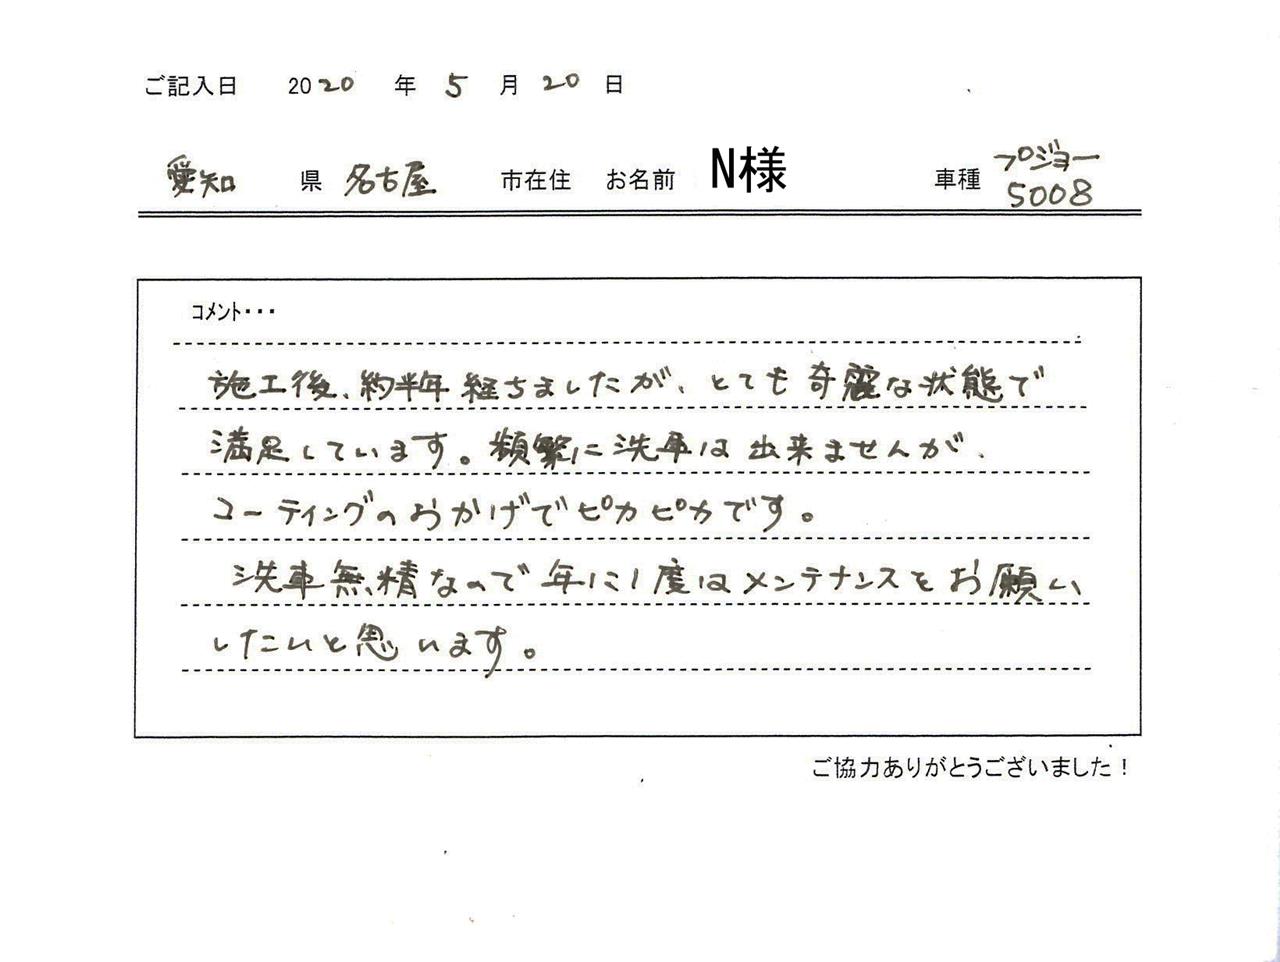 ご記入日 2020 年 5 月 20 日
愛知 県 名古屋 市在住 お名前 N様 車種 プジョー 5008
コメント・・・
施工後、約半年経ちましたが、とても奇麗な状態で
満足しています。頻繁に洗車は出来ませんが、
コーティングのおかげでピカピカです。
洗車無精なので年に1度はメンテナンスをお願い
したいと思います。
ご協力ありがとうございました！